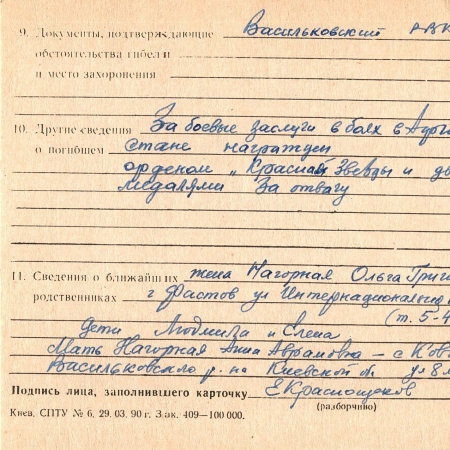 9. Документы, подтверждающие Васильковский РВК
обстоятельства гибели
и место захоронения
10. Другие сведения За боевые заслуги в боях в Афга
о погибшем стане награжден
орденом „Красной Звезды и дв
медалями За отвагу
11. Сведения о ближайших жена Нагорная Ольга Григ
родственниках г Фастов ул Интернациональная
(т. 5-4
дети Людмила и Елена
Мать Нагорная Анна Аврамовна – с Ков
Васильковского р-на Киевской об. ул 8 м
Подпись лица, заполнившего карточку ЕКраснощеков
(разборчиво)
Киев, СПТУ № 6, 29. 03. 90 г. Зак. 409—100 000.